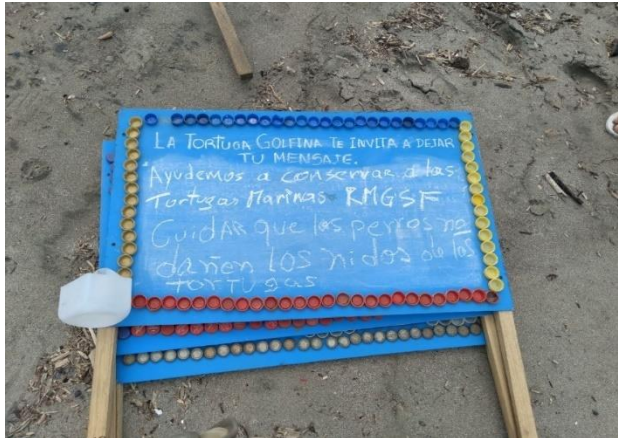 LA TORTUGA GOLFINA TE INVITA A DEJAR
TU MENSAJE.
"Ayudemos a conservar a las
Tortugas Marinas RMGSF
CuidAR que los perros no
dañen los nidos de las
TORTUGAS